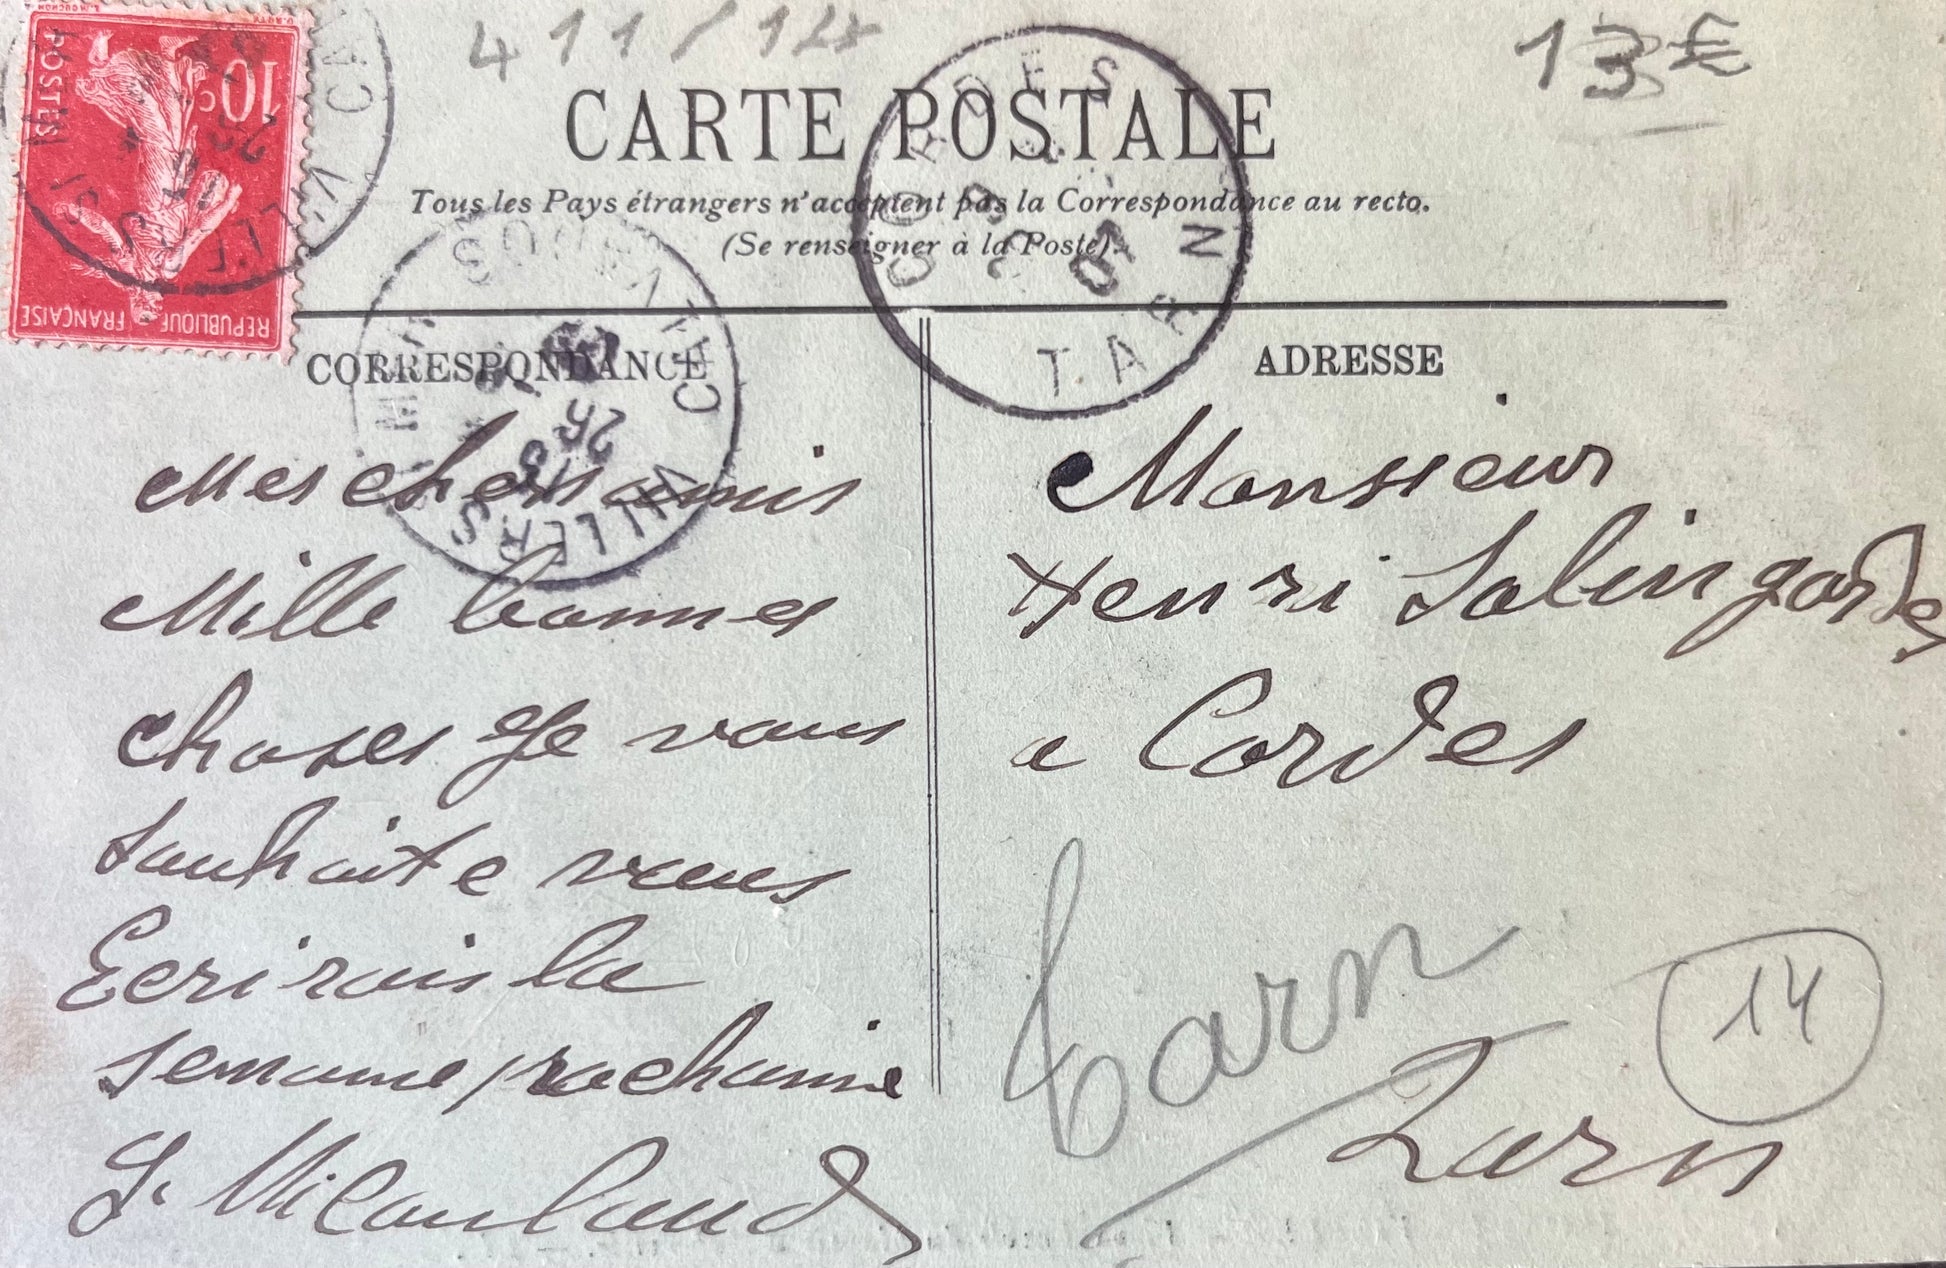 411/14
13€
CARTE POSTALE
Tous les Pays étrangers n'acceptent pas la Correspondance au recto.
(Se renseigner à la Poste).
POSTES
10c
REPUBLIQUE FRANÇAISE
CORDES
TARN
VILLERS
CORRESPONDANCE
Mes chers amis
Mille bonnes
choses Je vous
souhaite vous
Ecrirais la
semaine prochaine
ADRESSE
Monsieur
Henri Salingardes
a Cordes
Tarn
Tarn
14